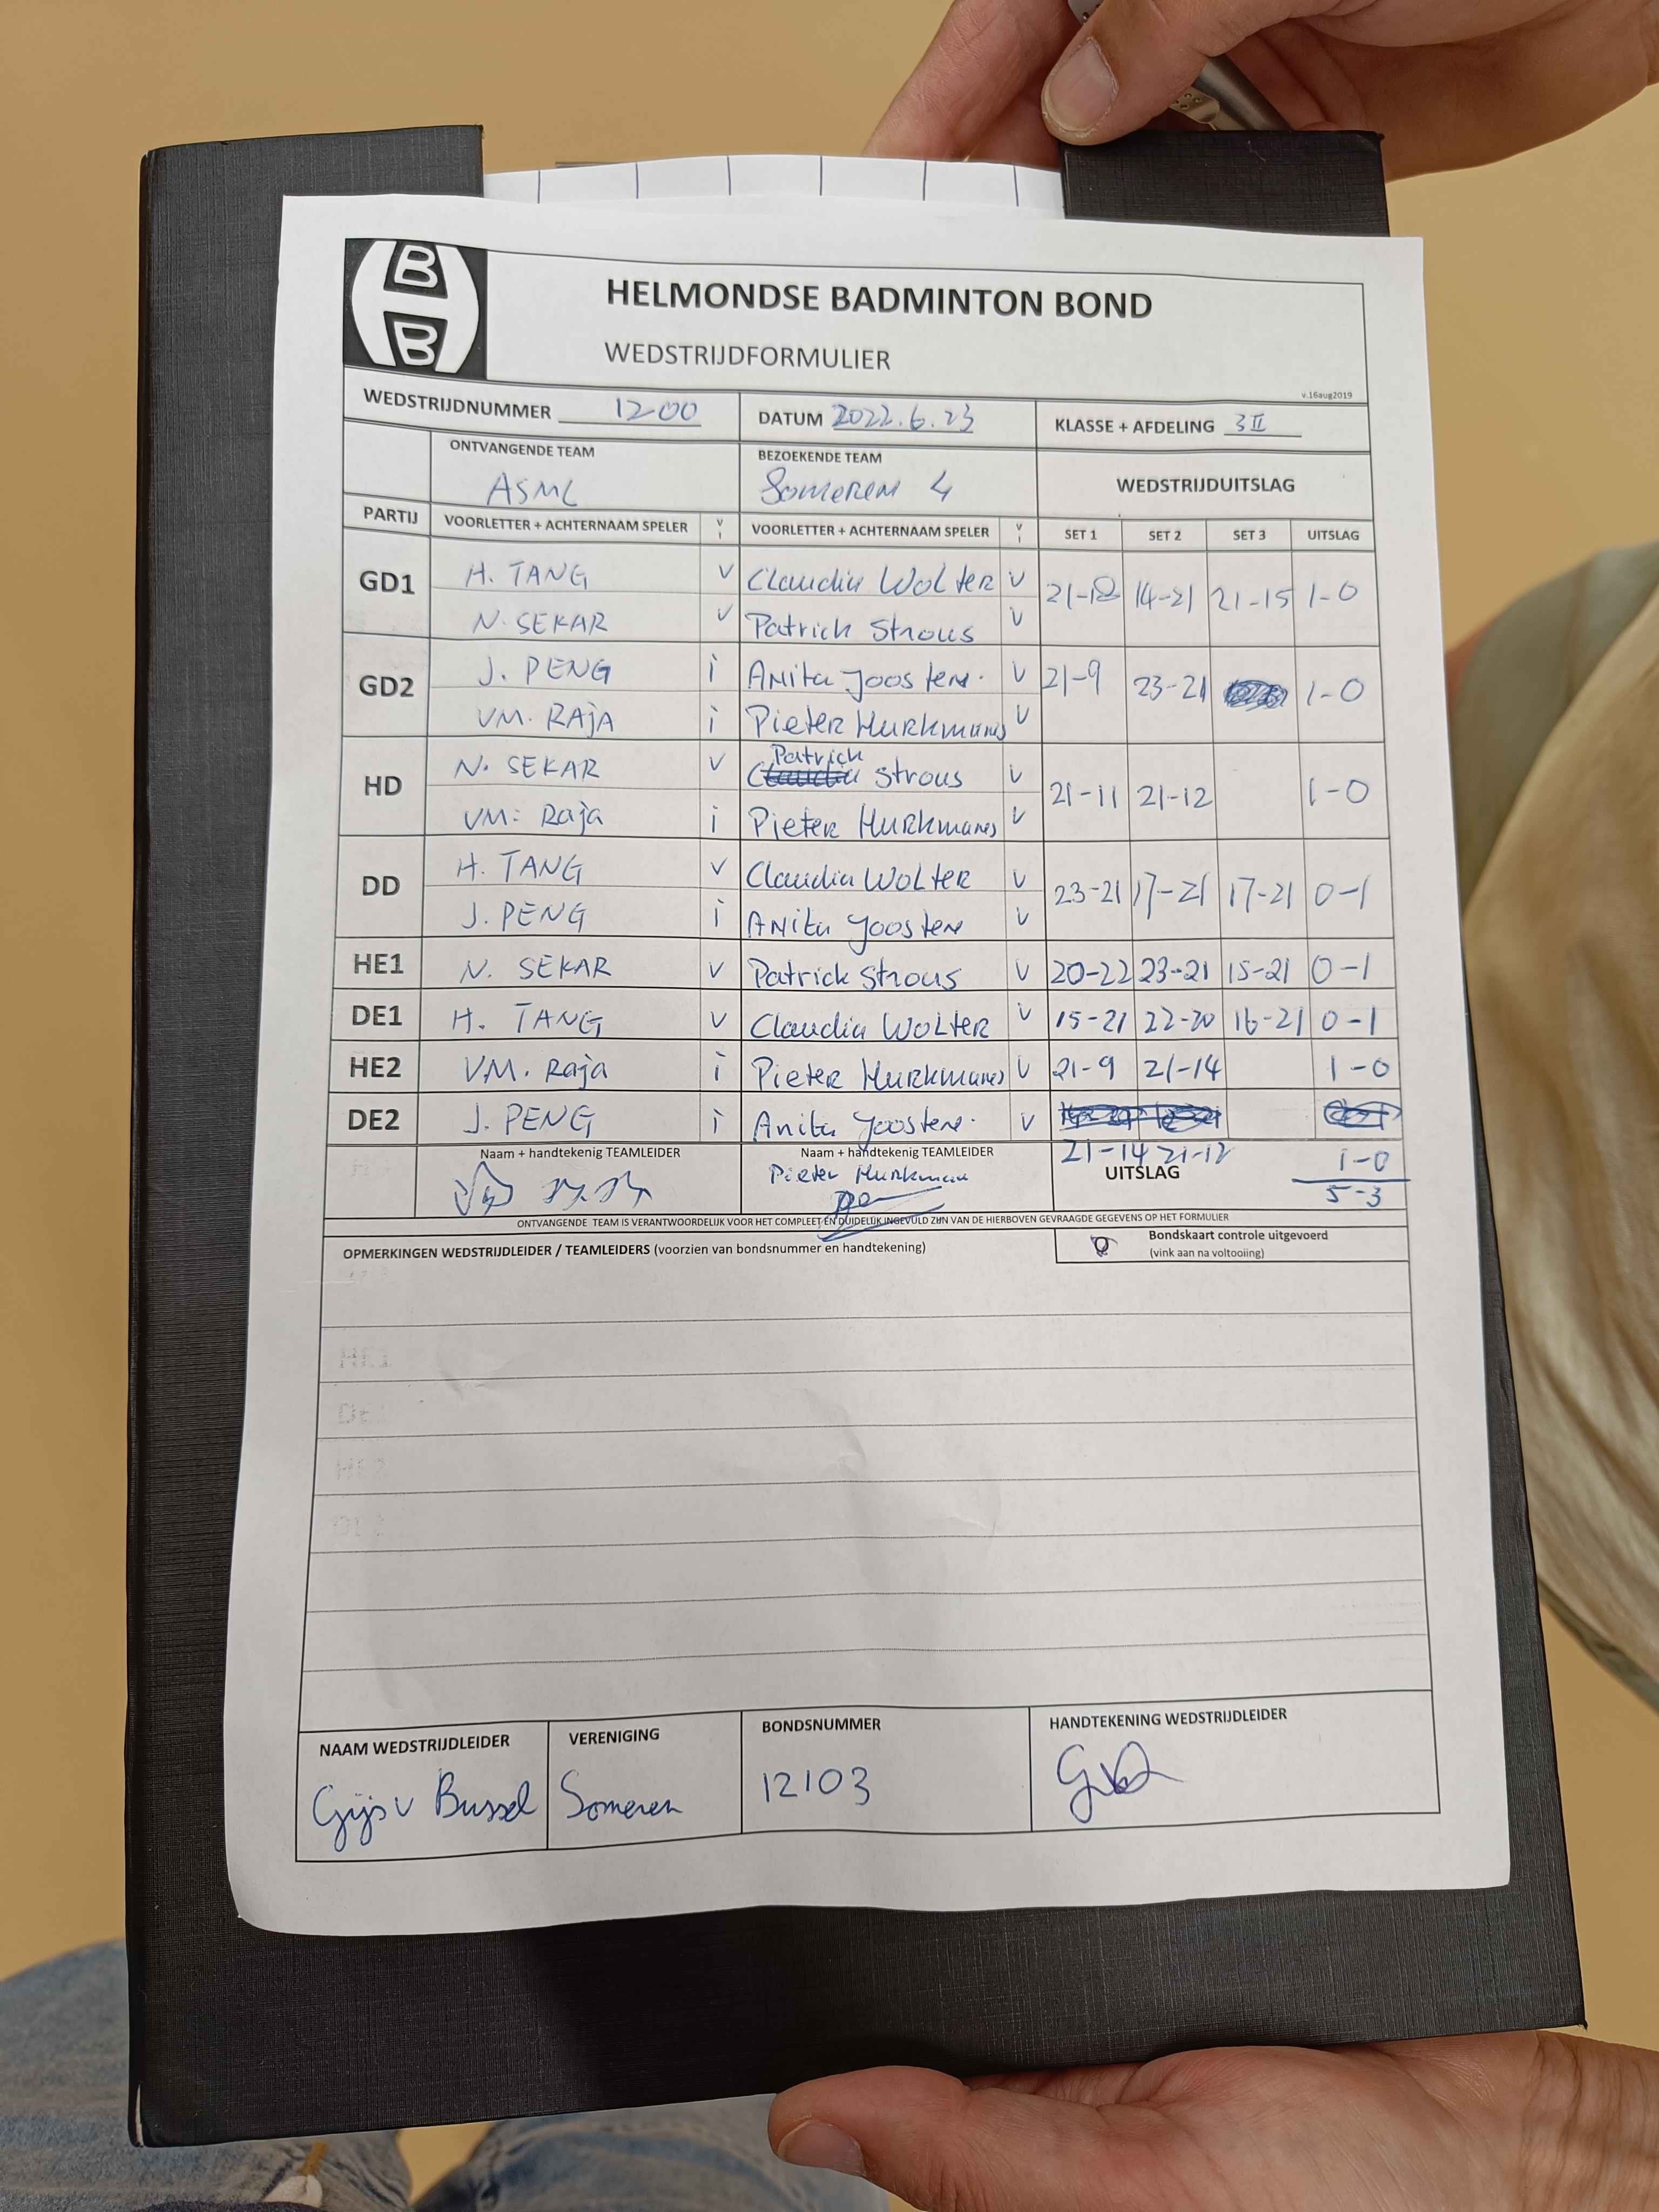 B
B
HELMONDSE BADMINTON BOND
WEDSTRIJDFORMULIER
v.16aug2019
WEDSTRIJDNUMMER 1200 DATUM 2022.6.23 KLASSE + AFDELING 3 II
ONTVANGENDE TEAM BEZOEKENDE TEAM WEDSTRIJDUITSLAG
ASML Someren 4
PARTIJ VOORLETTER + ACHTERNAAM SPELER V I VOORLETTER + ACHTERNAAM SPELER V I SET 1 SET 2 SET 3 UITSLAG
GD1 H. TANG V Claudia Wolter V 21-18 14-21 21-15 1-0
N. SEKAR V Patrick Strous V
GD2 J. PENG i Anita Joosten. V 21-9 23-21 1-0
VM. RAJA i Pieter Hurkmans V
HD N. SEKAR V Patrick Strous V 21-11 21-12 1-0
VM. Raja i Pieter Hurkmans V
DD H. TANG V Claudia Wolter V 23-21 17-21 17-21 0-1
J. PENG i Anita Joosten V
HE1 N. SEKAR V Patrick Strous V 20-22 23-21 15-21 0-1
DE1 H. TANG V Claudia Wolter V 15-21 22-20 16-21 0-1
HE2 VM. Raja i Pieter Hurkmans V 21-9 21-14 1-0
DE2 J. PENG i Anita Joosten. V
21-14 21-12 1-0
Naam + handtekenig TEAMLEIDER Naam + handtekenig TEAMLEIDER UITSLAG 5-3
Pieter Hurkmans
ONTVANGENDE TEAM IS VERANTWOORDELIJK VOOR HET COMPLEET EN DUIDELIJK INGEVULD ZIJN VAN DE HIERBOVEN GEVRAAGDE GEGEVENS OP HET FORMULIER
OPMERKINGEN WEDSTRIJDLEIDER / TEAMLEIDERS (voorzien van bondsnummer en handtekening)
Bondskaart controle uitgevoerd
(vink aan na voltooiing)
NAAM WEDSTRIJDLEIDER VERENIGING BONDSNUMMER HANDTEKENING WEDSTRIJDLEIDER
Gijs v Bussel Someren 12103